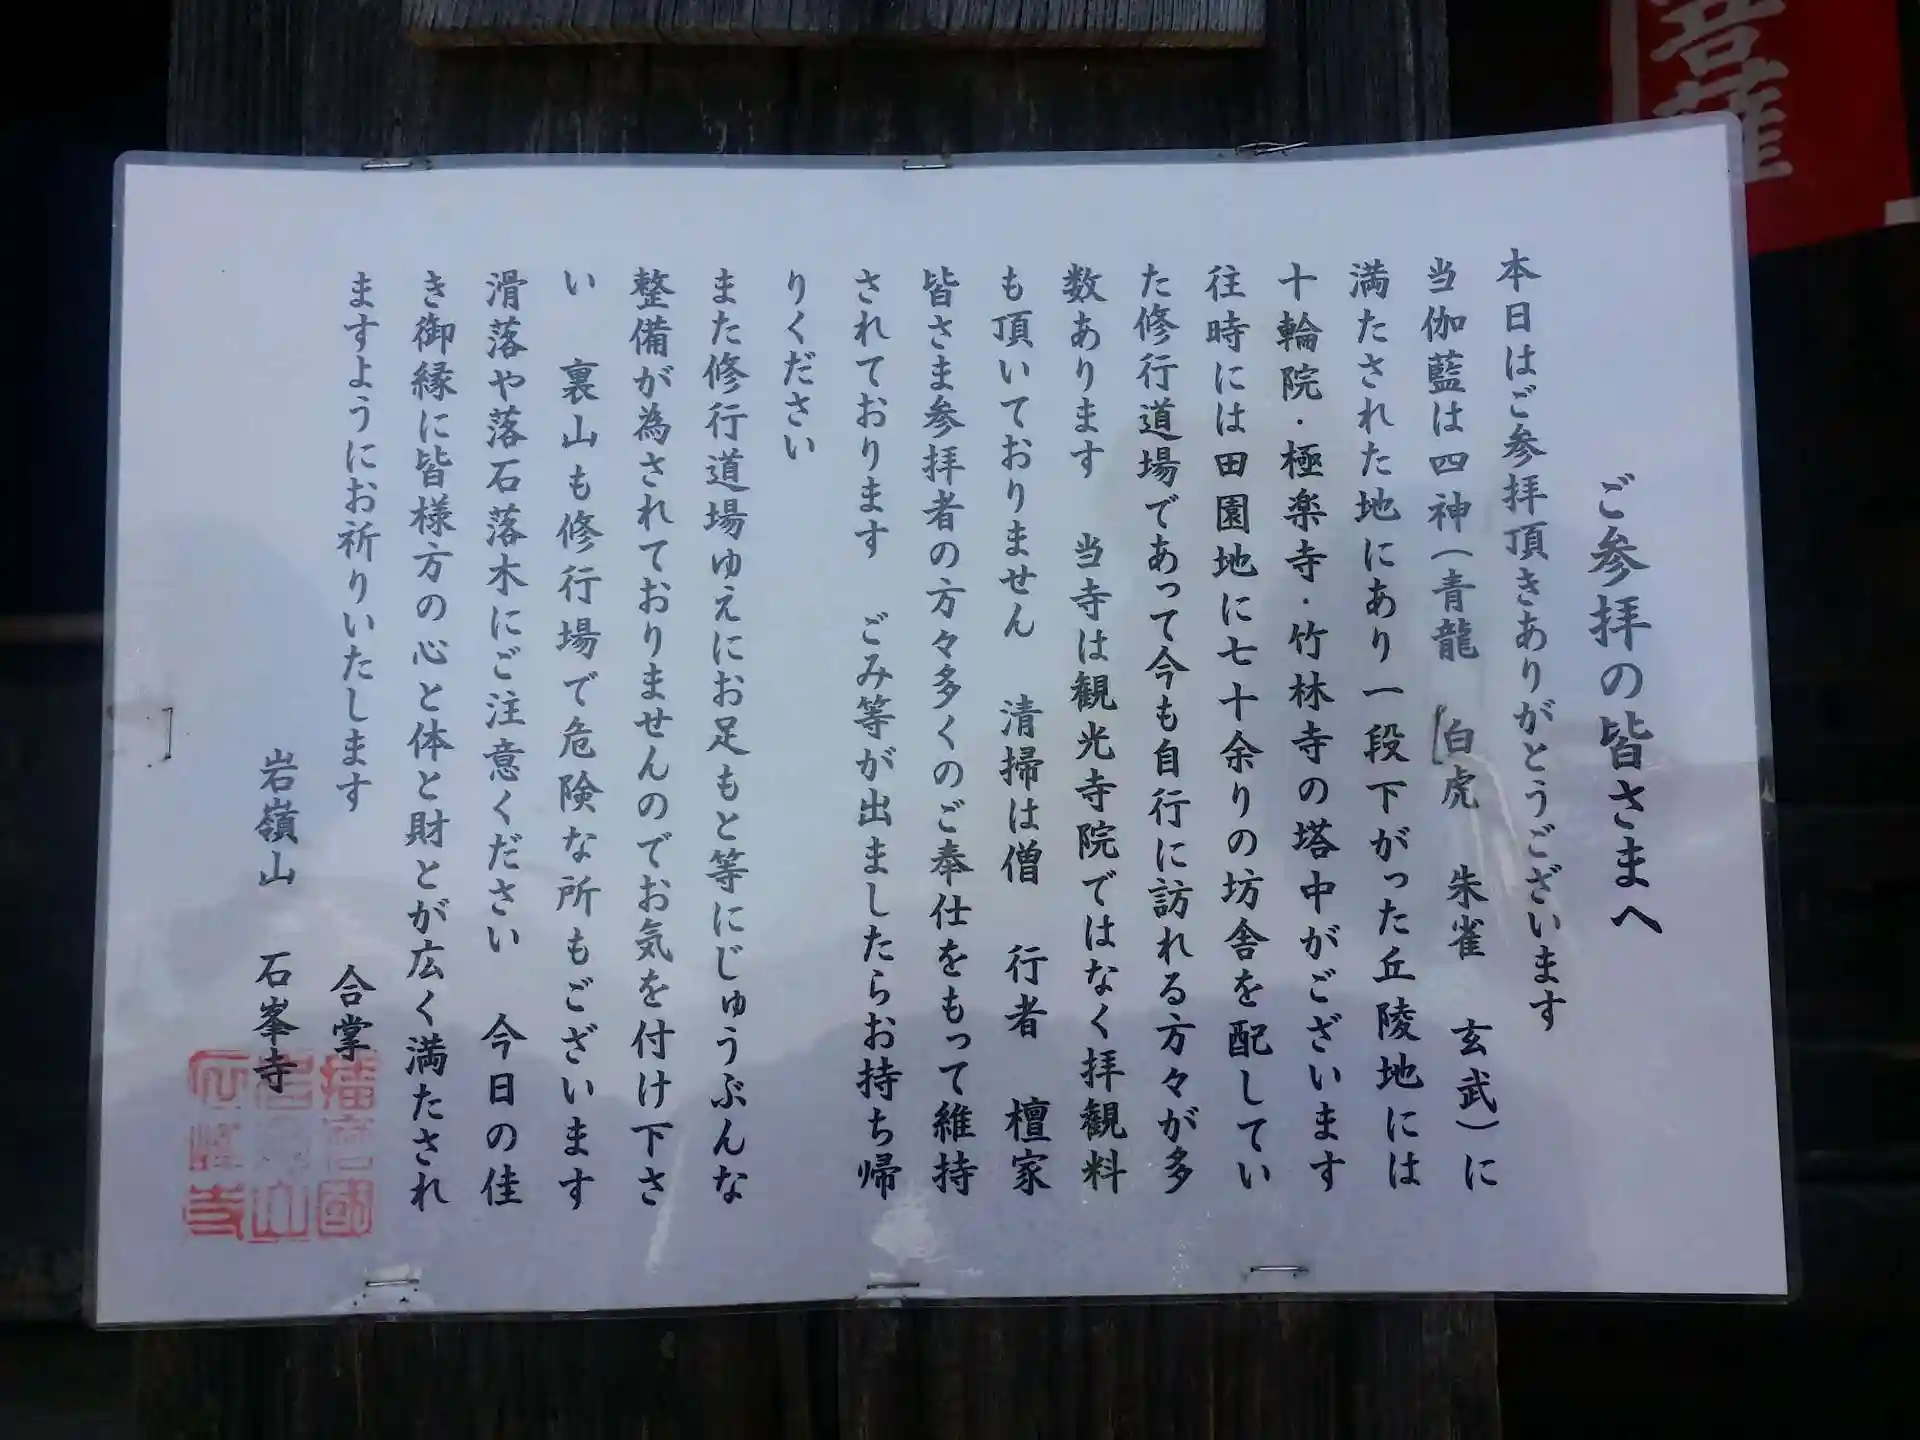 菩薩
ご参拝の皆さまへ
本日はご参拝頂きありがとうございます
当伽藍は四神（青龍　白虎　朱雀　玄武）に
満たされた地にあり一段下がった丘陵地には
十輪院・極楽寺・竹林寺の塔中がございます
往時には田園地に七十余りの坊舎を配してい
た修行道場であって今も自行に訪れる方々が多
数あります　当寺は観光寺院ではなく拝観料
も頂いておりません　清掃は僧　行者　檀家
皆さま参拝者の方々多くのご奉仕をもって維持
されております　ごみ等が出ましたらお持ち帰
りください
また修行道場ゆえにお足もと等にじゅうぶんな
整備が為されておりませんのでお気を付け下さ
い　裏山も修行場で危険な所もございます
滑落や落石落木にご注意ください　今日の佳
き御縁に皆様方の心と体と財とが広く満たされ
ますようにお祈りいたします
合掌
岩嶺山　石峯寺